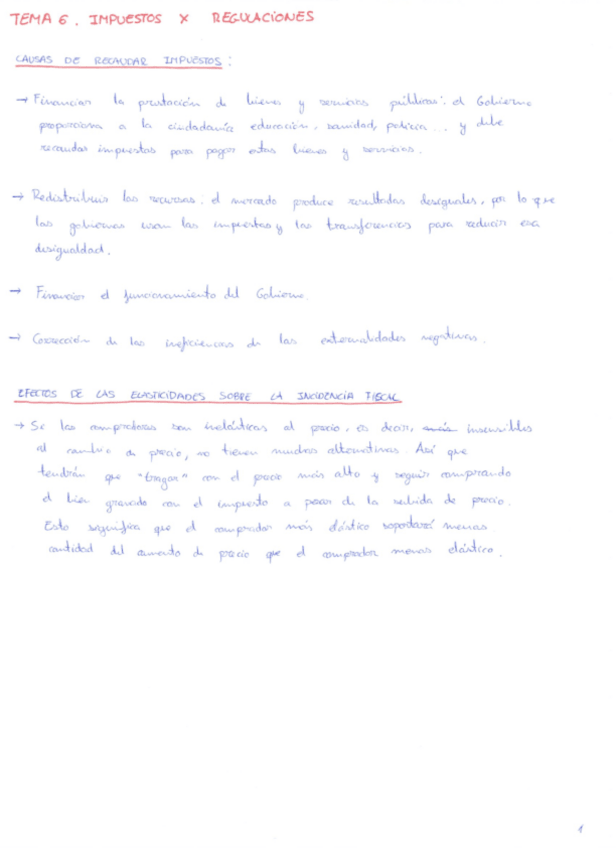 TEMA 6. IMPUESTOS X REGULACIONES
CAUSAS DE RECAUDAR IMPUESTOS:
→ Financiar la prestación de bienes y servicios públicos: el Gobierno
proporciona a la ciudadanía educación, sanidad, policía... y debe
recaudar impuestos para pagar estos bienes y servicios.
→ Redistribuir los recursos: el mercado produce resultados desiguales, por lo que
los gobiernos usan los impuestos y las transferencias para reducir esa
desigualdad.
→ Financiar el funcionamiento del Gobierno.
→ Corrección de las ineficiencias de las externalidades negativas.
EFECTOS DE LAS ELASTICIDADES SOBRE LA INCIDENCIA FISCAL
→ Si los compradores son inelásticos al precio, es decir, insensibles
al cambio de precio, no tienen muchas alternativas. Así que
tendrán que "tragar" con el precio más alto y seguir comprando
el bien gravado con el impuesto a pesar de la subida de precio.
Esto significa que el comprador más elástico soportará menos
cantidad del aumento de precio que el comprador menos elástico.
1